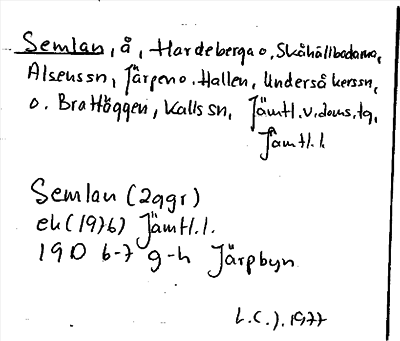 Semlan, å, Hardeberga o. Skåhällbodarna,
Alsenssn, Järpen o. Hallen, Undersåkerssn,
o. Bratthöggen, Kallssn, Jämtl. v. doms. tg,
Jämtl. l.
Semlan (2 ggr)
ek (1976) Jämtl. l.
19D 6-7 g-h Järpbyn
L.C.J. 1977